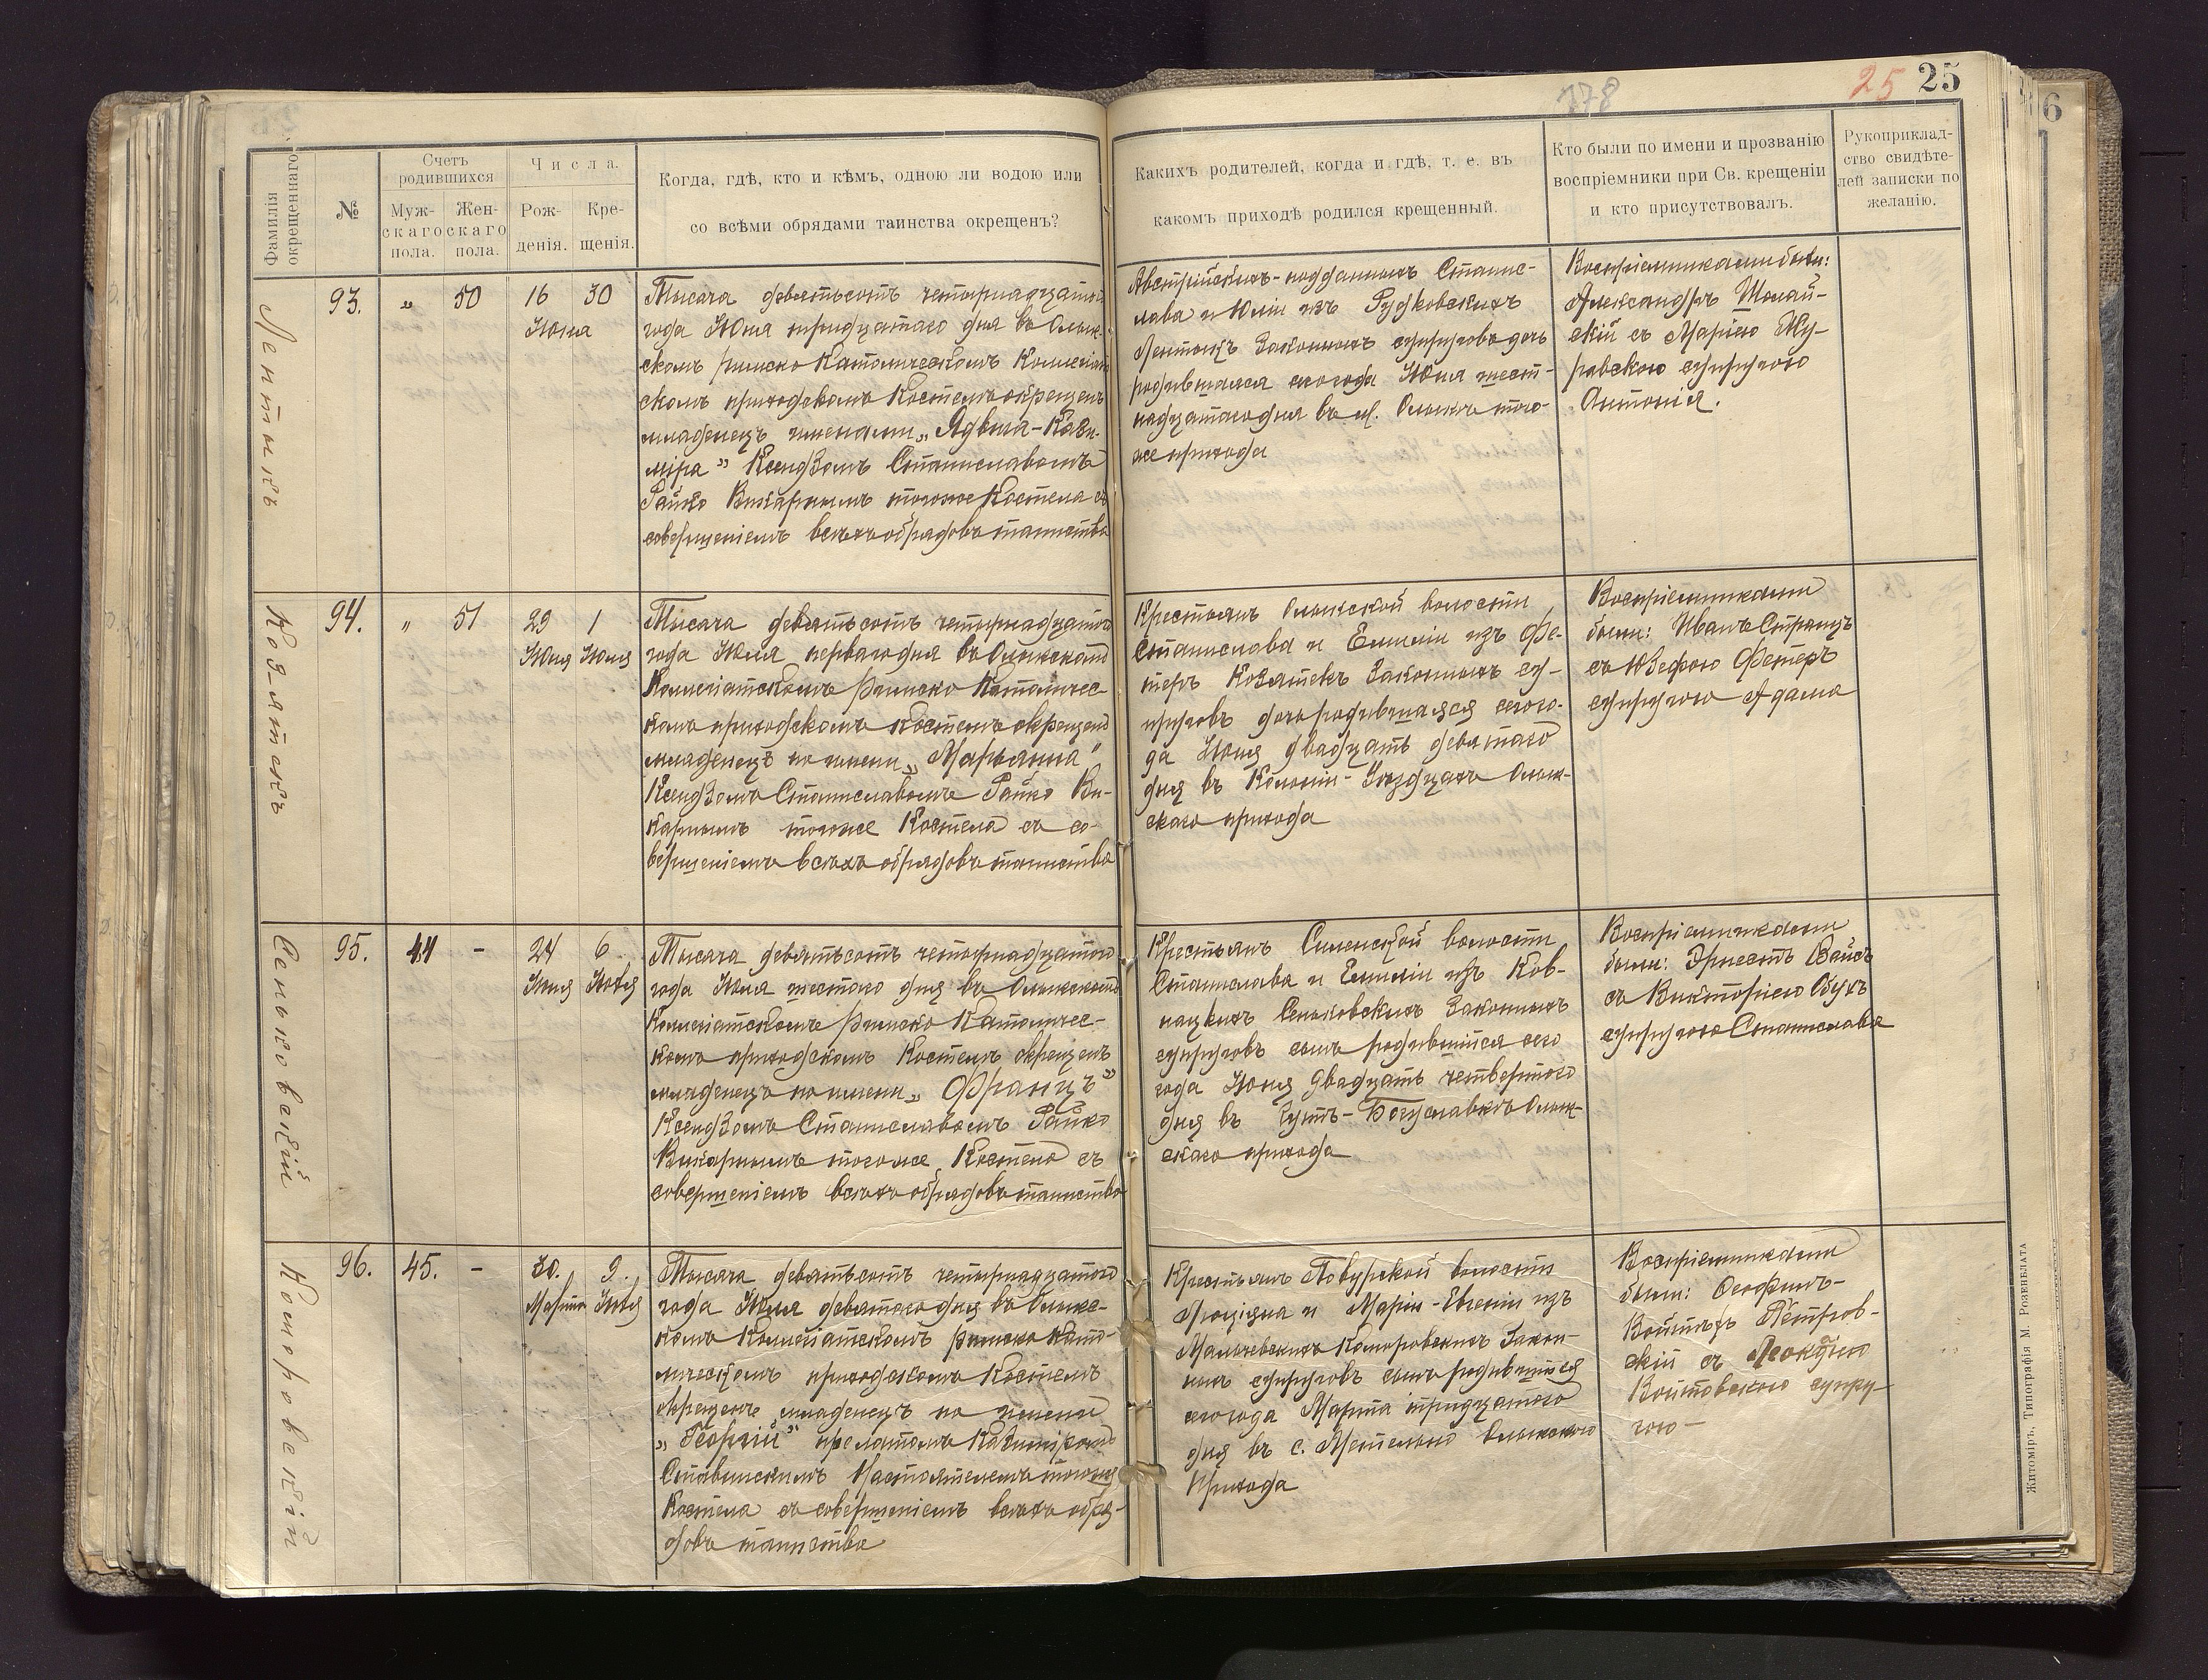 178
25 25
6
Фамилія окрещеннаго.
№
Счетъ родившихся
Муж-скаго пола.
Жен-скаго пола.
Числа.
Рож-денія.
Кре-щенія.
Когда, гдѣ, кто и кѣмъ, одною ли водою или
со всѣми обрядами таинства окрещенъ?
Какихъ родителей, когда и гдѣ, т. е. въ
какомъ приходѣ родился крещенный.
Кто были по имени и прозванію
воспріемники при Св. крещеніи
и кто присутствовалъ.
Рукоприклад-
ство свидѣте-
лей записки по
желанію.
Лентыкъ
93. „ 50 16 30
Іюня
Тысяча девятьсотъ четырнадцатаго
года Іюня тридцатаго дня въ Олык-
скомъ римско Католическомъ Коллегіат
скомъ приходскомъ Костелѣ окрещенъ
младенецъ именами „Ядвига-Кази-
міра" Ксендзомъ Станиславомъ
Гайко Викарнымъ тогоже Костела съ
совершеніемъ всѣхъ обрядовъ таинства
Австрійскихъ-подданныхъ Станис-
лава и Юліи изъ Рудковскихъ
Лентыкъ Законныхъ супруговъ дочь
родившаяся сего года Іюня шест-
надцатаго дня въ м. Олыкѣ того-
же прихода
Воспріемниками были:
Александръ Шолай-
скій съ Маріею Жу-
равскою супругою
Антонія.
Козлятекъ
94. „ 51 29 1
Іюня Іюля
Тысяча девятьсотъ четырнадцатаго
года Іюля перваго дня въ Олыкскомъ
Коллегіатскомъ Римско Католичес-
комъ приходскомъ Костелѣ окрещенъ
младенецъ по имени „Марьянна"
Ксендзомъ Станиславомъ Гайко Ви-
карнымъ тогоже Костела съ со-
вершеніемъ всѣхъ обрядовъ таинства
Крестьянъ Олыкской волости
Станислава и Емиліи изъ Фе-
теръ Козлятекъ Законныхъ су-
пруговъ дочь родившаяся сего го-
да Іюня двадцать девятаго
дня въ Колоніи-Уѣздцахъ Олык-
скаго прихода
Воспріемниками
были: Иванъ Странцъ
съ Юзефою Фетеръ
супругою Адама
Сеньковскій
95. 44 - 24 6
Іюня Іюля
Тысяча девятьсотъ четырнадцатаго
года Іюля шестаго дня въ Олыкскомъ
Коллегіатскомъ Римско Католичес-
комъ приходскомъ Костелѣ окрещенъ
младенецъ по имени „Францъ"
Ксендзомъ Станиславомъ Гайко
Викарнымъ тогоже Костела съ
совершеніемъ всѣхъ обрядовъ таинства
Крестьянъ Силенской волости
Станислава и Емиліи изъ Ков-
нацкихъ Сеньковскихъ Законныхъ
супруговъ сынъ родившійся сего
года Іюня двадцать четвертаго
дня въ Гутѣ-Богуславкѣ Олык-
скаго прихода
Воспріемниками
были: Эрнестъ Вайсъ
съ Викторіею Обухъ
супругою Станислава
Коморовскій
96. 45. - 30. 9.
Марта Іюля
Тысяча девятьсотъ четырнадцатаго
года Іюля девятаго дня въ Олыкс-
комъ Коллегіатскомъ Римско Като-
лическомъ приходскомъ Костелѣ
окрещенъ младенецъ по имени
„Георгій" прелатомъ Казиміромъ
Ставинскимъ Настоятелемъ тогоже
Костела съ совершеніемъ всѣхъ обря-
довъ таинства
Крестьянъ Повурской волости
Люціяна и Маріи-Евгеніи изъ
Мальчевскихъ Коморовскихъ Закон-
ныхъ супруговъ сынъ родившійся
сего года Марта тридцатаго
дня въ с. Метельно Олыкскаго
Прихода
Воспріемниками
были: Ѳеофилъ-
Войтѣхъ Петров-
скій съ Леокадіею
Войтовскою супру-
гою-
Житоміръ, Типографія М. Розенблата